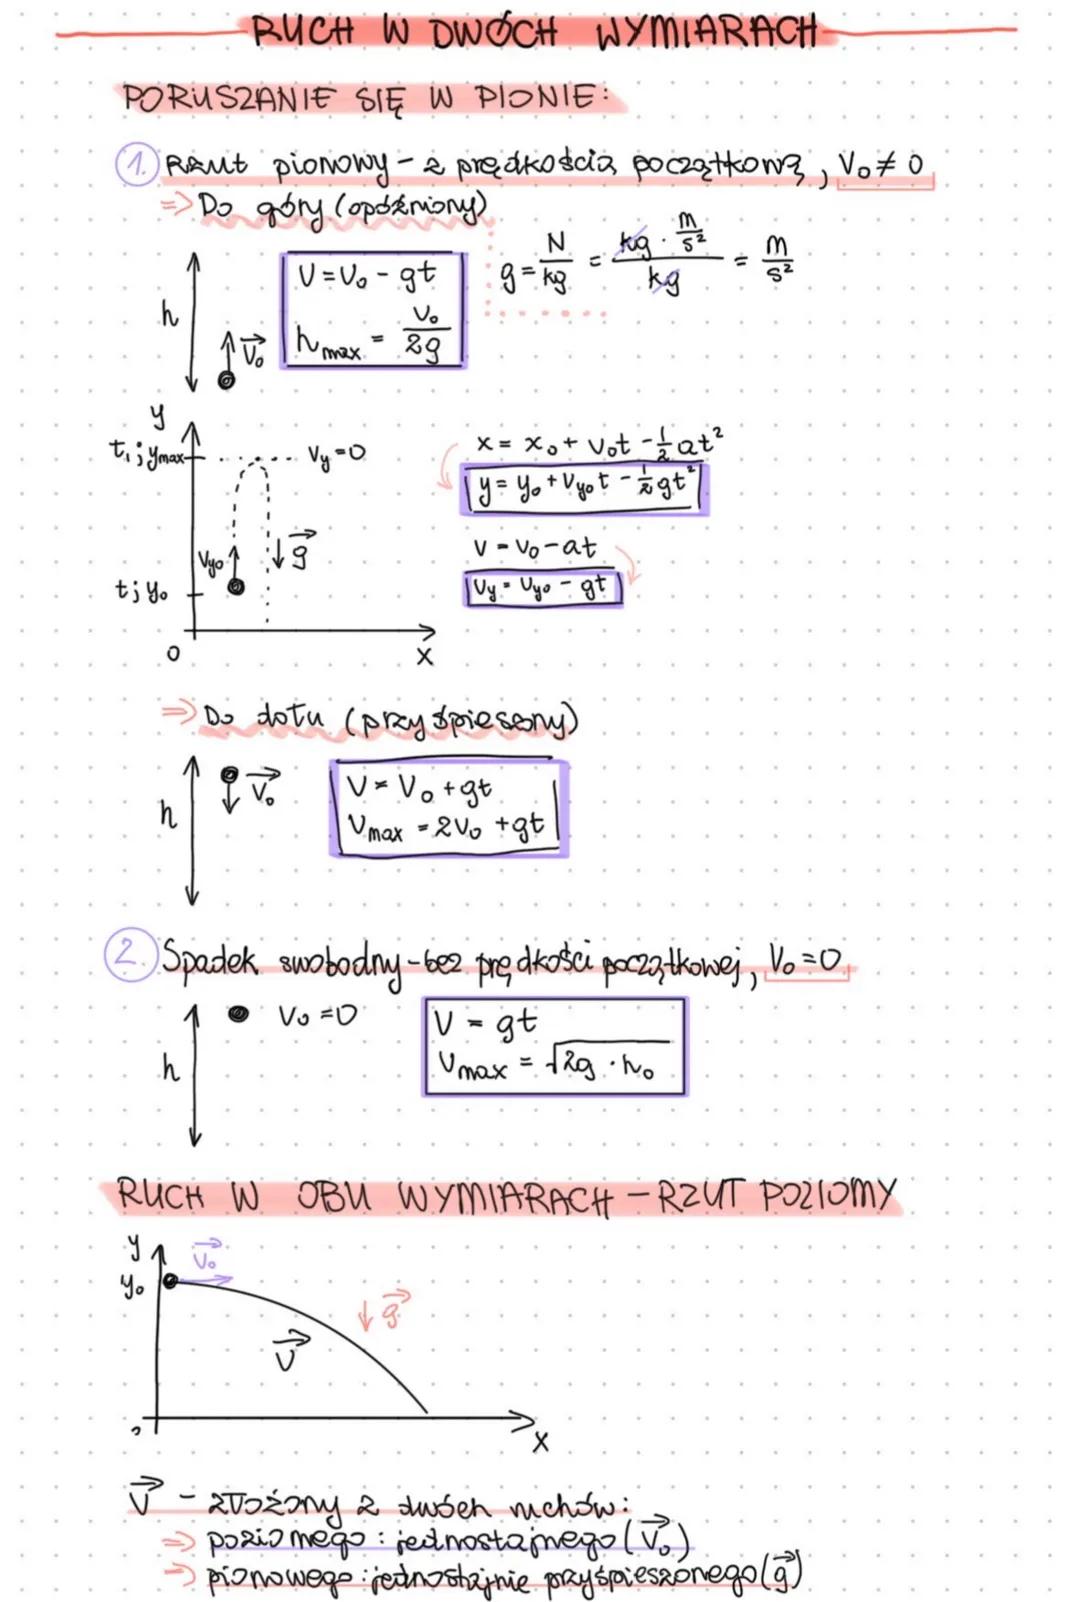 RUCH W DWÓCH WYMIARACH
PORUSZANIE SIĘ W PIONIE:
1. Rzut pionowy - z prędkością początkową, V₀ ≠ 0
=> Do góry (opóźniony)
h
V⃗₀
V = V₀ - gt
h max = V₀/2g
g = N/kg = (kg · m/s²)/kg = m/s²
y
t₁; ymax
Vy = 0
Vy₀
g⃗
t; y₀
0
x
x = x₀ + V₀t - ½at²
y = y₀ + Vy₀t - ½gt²
V = V₀ - at
Vy = Vy₀ - gt
=> Do dołu (przyśpieszony)
h
V⃗₀
V = V₀ + gt
Vmax = 2V₀ + gt
2. Spadek swobodny - bez prędkości początkowej, V₀ = 0
h
V₀ = 0
V = gt
Vmax = √2g · h₀
RUCH W OBU WYMIARACH - RZUT POZIOMY
y
y₀
V⃗₀
g⃗
V⃗
x
V⃗ - złożony z dwóch ruchów:
=> poziomego: jednostajnego (V⃗₀)
=> pionowego: jednostajnie przyśpieszonego (g⃗)